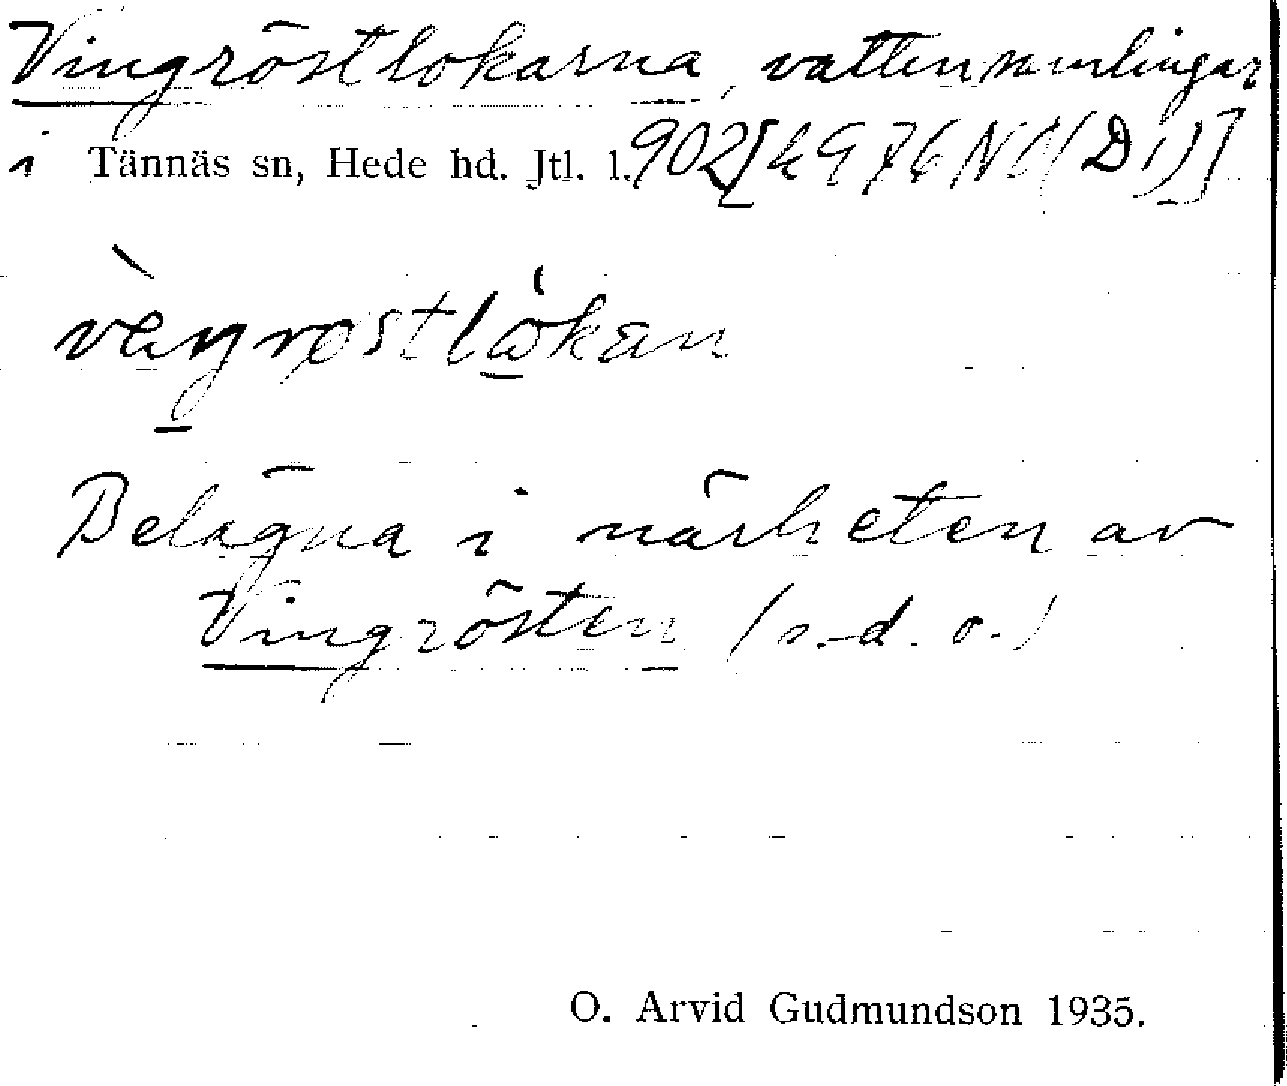 Vingröstlokarna, vattensamlingar
i Tännäs sn, Hede hd. Jtl. l. 902
vèŋrøstlòkan
Belägna i närheten av
Vingrösten (s.d.o.)
O. Arvid Gudmundson 1935.